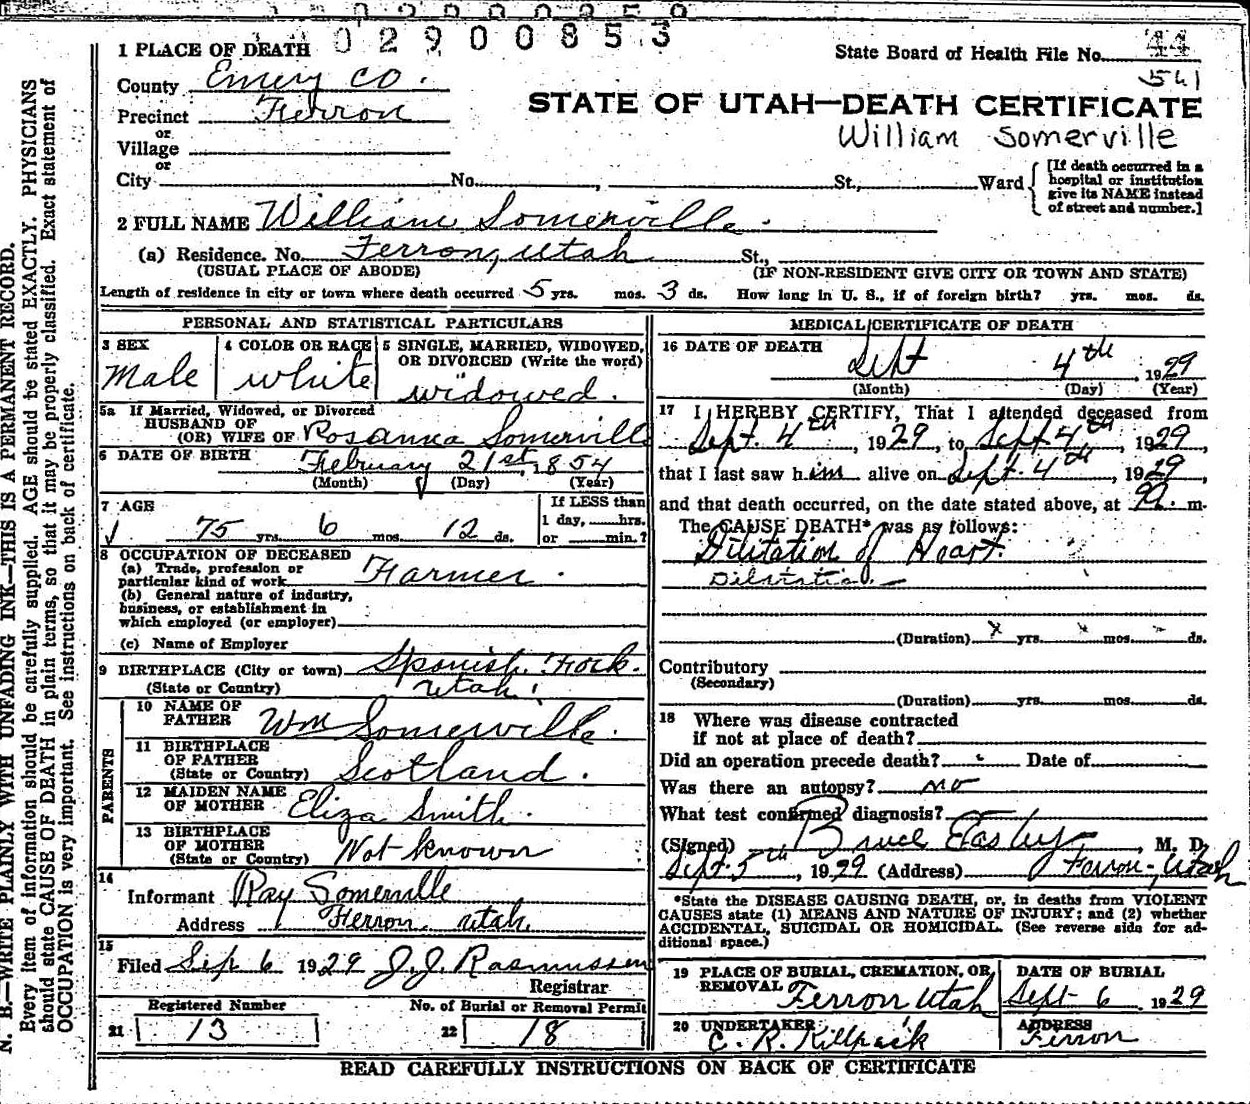 02900853
1 PLACE OF DEATH
State Board of Health File No. 44
541
County Emery Co.
STATE OF UTAH—DEATH CERTIFICATE
Precinct Ferron
William Somerville
or
Village
or
City No. , St., Ward
[If death occurred in a
hospital or institution
give its NAME instead
of street and number.]
2 FULL NAME William Somerville.
(a) Residence. No. Ferron, Utah St.,
(USUAL PLACE OF ABODE) (IF NON-RESIDENT GIVE CITY OR TOWN AND STATE)
Length of residence in city or town where death occurred 5 yrs. mos. 3 ds. How long in U. S., if of foreign birth? yrs. mos. ds.
PERSONAL AND STATISTICAL PARTICULARS
3 SEX
Male
4 COLOR OR RACE
White
5 SINGLE, MARRIED, WIDOWED,
OR DIVORCED (Write the word)
widowed.
5a If Married, Widowed, or Divorced
HUSBAND OF
(OR) WIFE OF Rosanna Somerville
6 DATE OF BIRTH February 21st, 1854
(Month) (Day) (Year)
7 AGE
75 yrs. 6 mos. 12 ds.
If LESS than
1 day, hrs.
or min.?
8 OCCUPATION OF DECEASED
(a) Trade, profession or
particular kind of work Farmer.
(b) General nature of industry,
business, or establishment in
which employed (or employer)
(c) Name of Employer
9 BIRTHPLACE (City or town) Spanish Fork.
(State or Country) Utah
PARENTS
10 NAME OF
FATHER Wm Somerville.
11 BIRTHPLACE
OF FATHER
(State or Country) Scotland.
12 MAIDEN NAME
OF MOTHER Eliza Smith.
13 BIRTHPLACE
OF MOTHER
(State or Country) Not known
14
Informant Ray Somerville
Address Ferron Utah
15
Filed Sep 6 1929 J. J. Rasmussen
Registrar
Registered Number
21 13
No. of Burial or Removal Permit
22 18
MEDICAL CERTIFICATE OF DEATH
16 DATE OF DEATH
Sept 4th, 1929
(Month) (Day) (Year)
17 I HEREBY CERTIFY, That I attended deceased from
Sept. 4th, 1929, to Sept 4th, 1929
that I last saw him alive on Sept. 4th, 1929,
and that death occurred, on the date stated above, at m.
The CAUSE DEATH* was as follows:
Dilitation of Heart.
Dilatation
(Duration) yrs. mos. ds.
Contributory
(Secondary)
(Duration) yrs. mos. ds.
18 Where was disease contracted
if not at place of death?
Did an operation precede death? Date of
Was there an autopsy? no
What test confirmed diagnosis?
(Signed) Bruce Easley, M. D.
Sept. 5th, 1929 (Address) Ferron, Utah
*State the DISEASE CAUSING DEATH, or, in deaths from VIOLENT
CAUSES state (1) MEANS AND NATURE OF INJURY; and (2) whether
ACCIDENTAL, SUICIDAL OR HOMICIDAL. (See reverse side for ad-
ditional space.)
19 PLACE OF BURIAL, CREMATION, OR
REMOVAL
Ferron Utah
DATE OF BURIAL
Sept 6 1929
20 UNDERTAKER
C. R. Killpack
ADDRESS
Ferron
READ CAREFULLY INSTRUCTIONS ON BACK OF CERTIFICATE
N. B.—WRITE PLAINLY WITH UNFADING INK—THIS IS A PERMANENT RECORD.
Every item of information should be carefully supplied. AGE should be stated EXACTLY. PHYSICIANS
should state CAUSE OF DEATH in plain terms, so that it may be properly classified. Exact statement of
OCCUPATION is very important. See instructions on back of certificate.